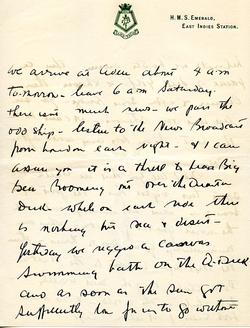 H. M. S. EMERALD,
EAST INDIES STATION.
we arrive at Aden about 4 am
tomorrow - leave 6 am Saturday
there isn't much news - we pass the
odd ship - listen to the News Broadcast
from London each night - & I can
assure you it is a thrill to hear Big
Ben Booming out over the Quarter
Deck while on each side there
is nothing but sea & desert -
Yesterday we rigged a canvas
swimming bath on the Q. Deck
and as soon as the sun got
sufficiently low for us to go without